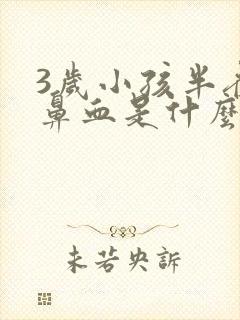 3歲小孩半
鼻血是什麼
未若央訴